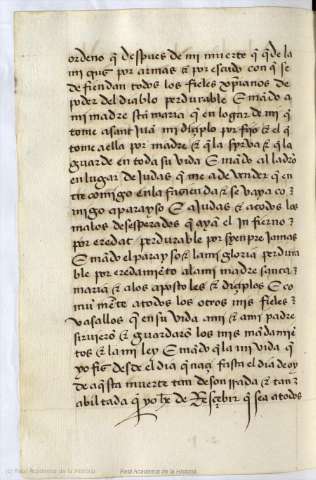 ordeno q̄ despues de mi muerte q̄ q̄de la
mi por armas ⁊ por escudo con q̄ se
defiendan todos los fieles xp̄ianos de
poder del diablo perdurable E mādo a
mi madre sc̄ta maria q̄ en logar de mi q̄
tome a sant juā mi diçiplo por fijo ⁊ el q̄
tome a ella por madre ⁊ q̄ la syrua ⁊ q̄ la
guarde en toda su vida E mādo al ladrō
en lugar de judas q̄ me a de vender q̄ en
tre comigo en la ⁊ se vaya co
migo a parayso E a judas ⁊ a todos los
malos desesperados q̄ ayā el infierno
por eredat perdurable por syenpre jamas
E mādo el parayso ⁊ la mi gloria perdura
ble por eredamiēto a la mi madre santa
maria ⁊ a los apostoles ⁊ diçiplos E co
mū mēte a todos los otros mis fieles
vasallos q̄ en su vida a mi ⁊ a mi padre
siruierō ⁊ guardarō los mis mādamiē
tos ⁊ la mi ley E mādo q̄ la mi vida q̄
yo fiz desde el dia q̄ naçi fasta el dia de oy
de aq̄sta muerte tan desonrrada ⁊ tan
abiltada q̄ yo he de Resçebir q̄ sea a todos
(c) Real Academia de la Historia
Real Academia de la Historia